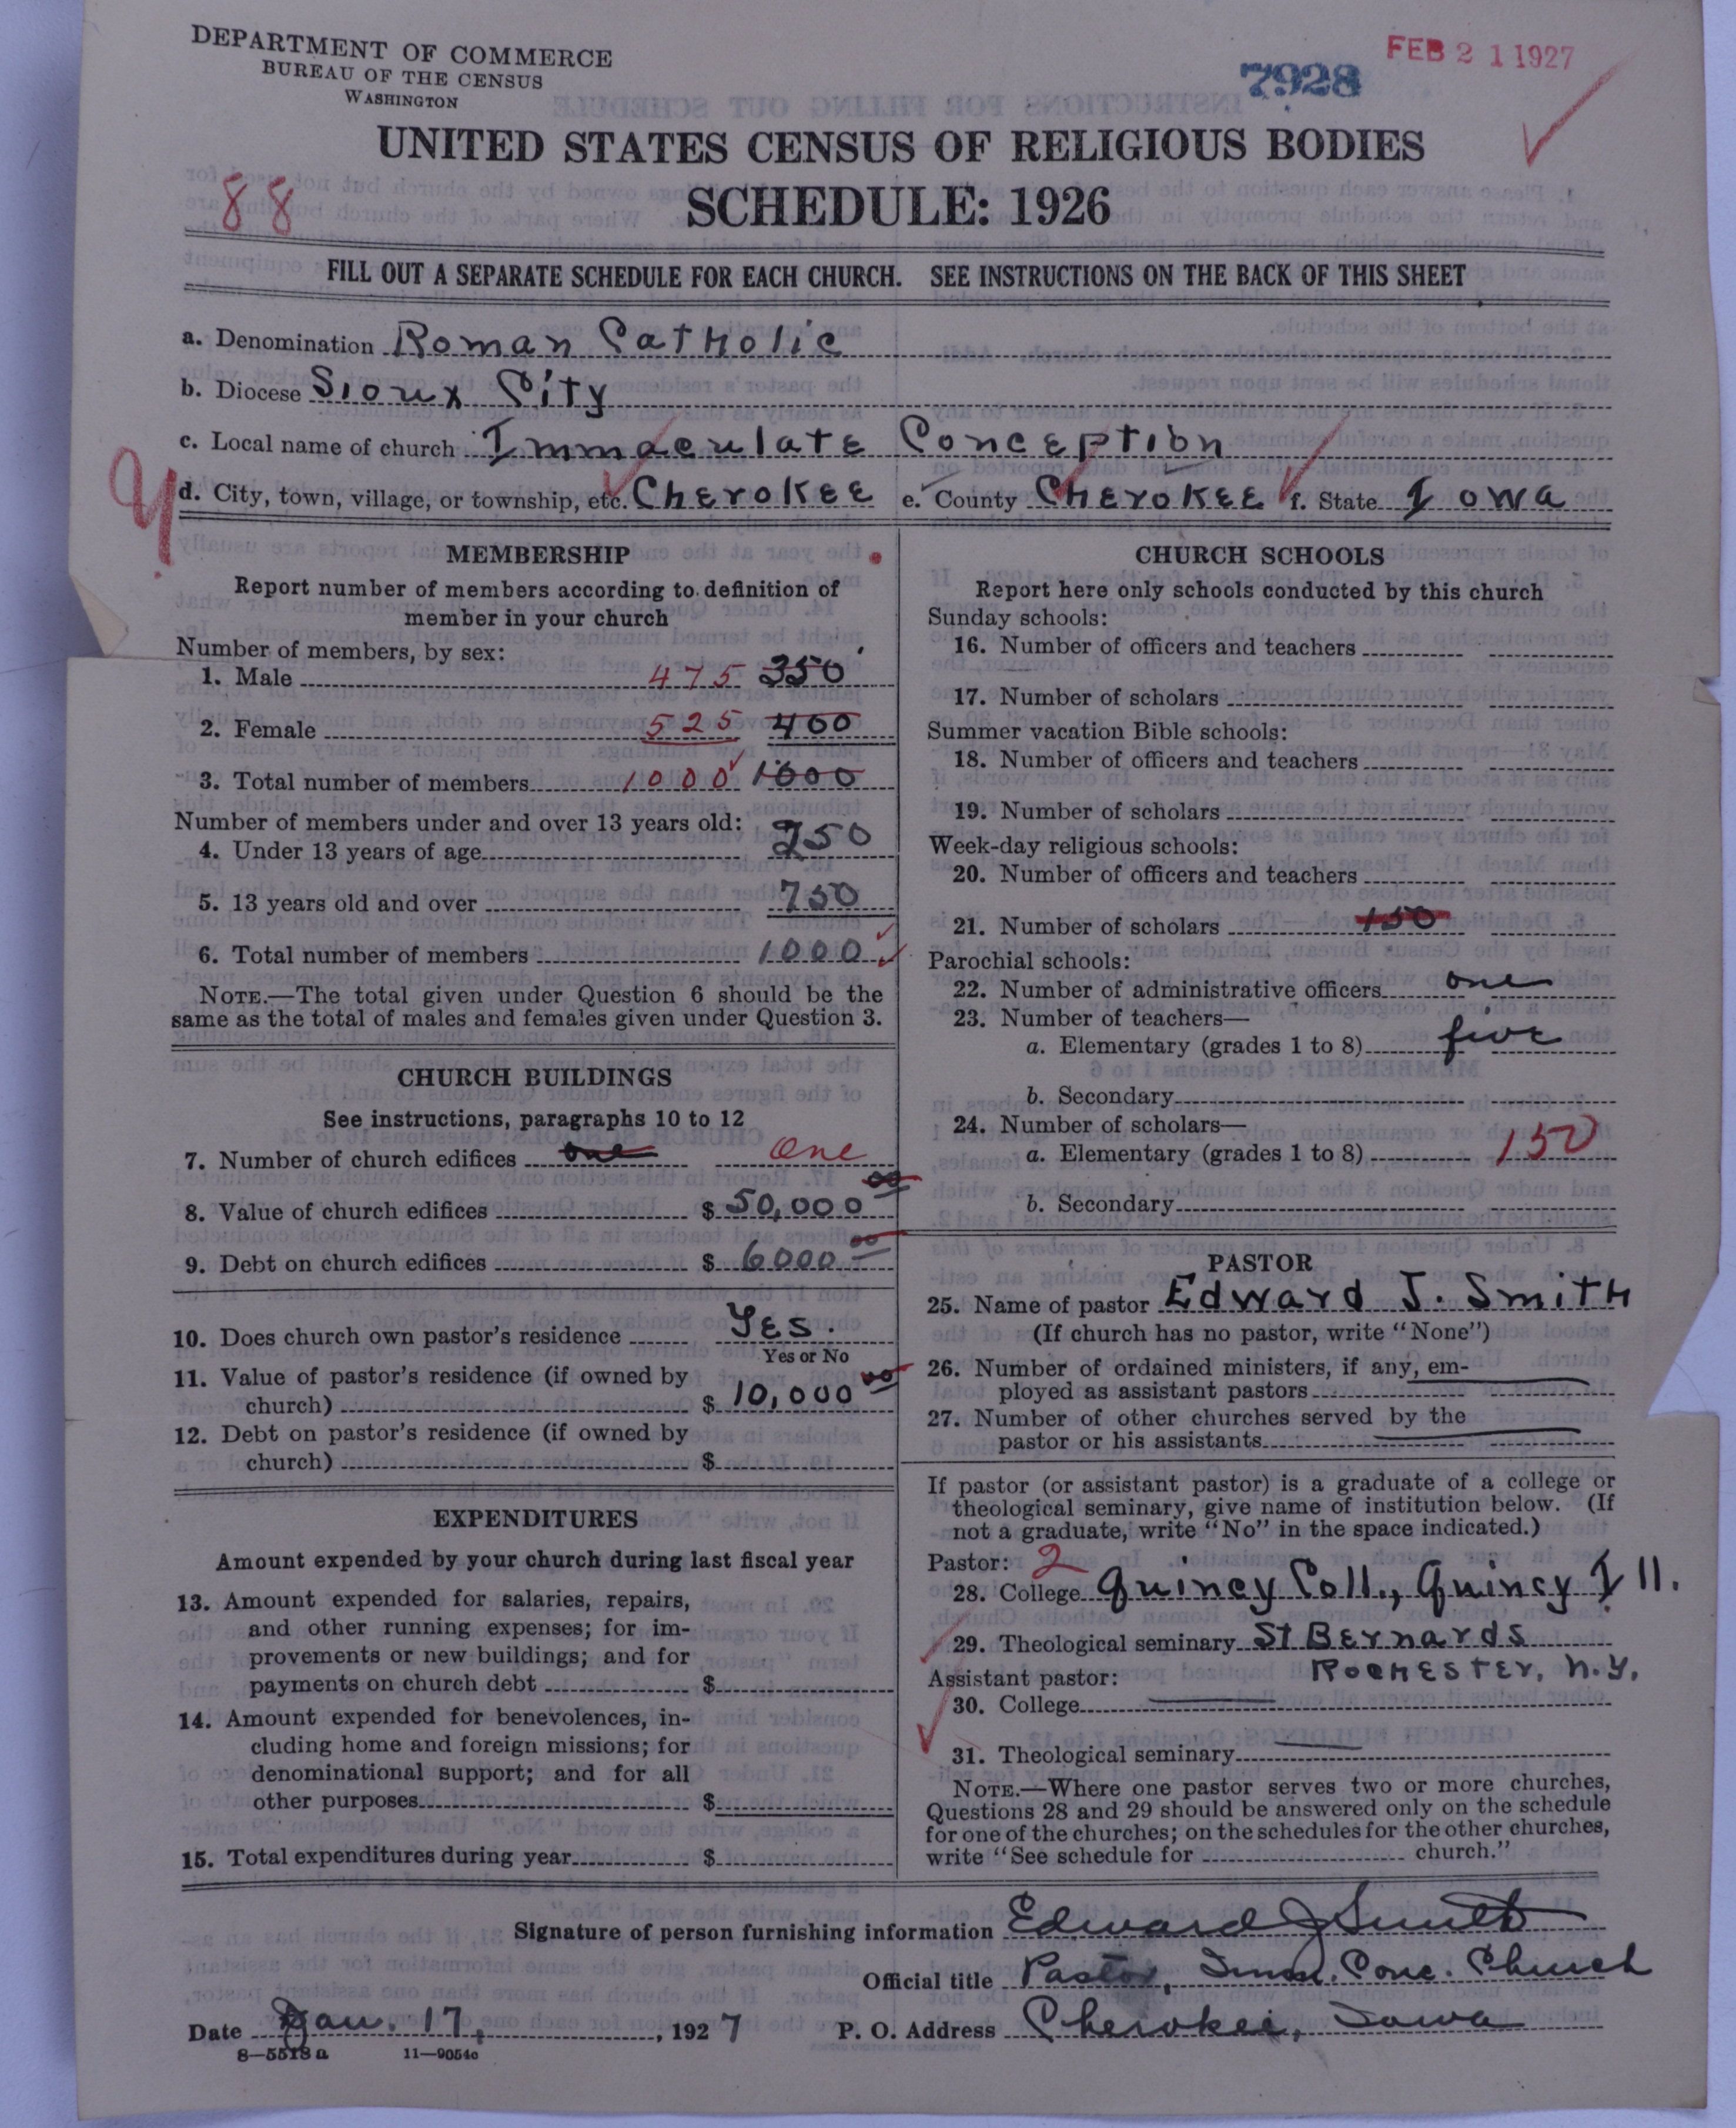 DEPARTMENT OF COMMERCE
BUREAU OF THE CENSUS
WASHINGTON
7928
FEB 21 1927
UNITED STATES CENSUS OF RELIGIOUS BODIES
88
SCHEDULE: 1926
FILL OUT A SEPARATE SCHEDULE FOR EACH CHURCH. SEE INSTRUCTIONS ON THE BACK OF THIS SHEET
a. Denomination Roman Catholic
b. Diocese Sioux City
c. Local name of church Immaculate Conception
d. City, town, village, or township, etc. Cherokee e. County Cherokee f. State Iowa
MEMBERSHIP
Report number of members according to definition of
member in your church
Number of members, by sex:
1. Male 475 350
2. Female 525 400
3. Total number of members 1000 1000
Number of members under and over 13 years old:
4. Under 13 years of age 250
5. 13 years old and over 750
6. Total number of members 1000
NOTE.—The total given under Question 6 should be the
same as the total of males and females given under Question 3.
CHURCH BUILDINGS
See instructions, paragraphs 10 to 12
7. Number of church edifices one one
8. Value of church edifices $ 50,000 00
9. Debt on church edifices $ 6000 00
10. Does church own pastor's residence Yes.
Yes or No
11. Value of pastor's residence (if owned by
church) $ 10,000 00
12. Debt on pastor's residence (if owned by
church) $
EXPENDITURES
Amount expended by your church during last fiscal year
13. Amount expended for salaries, repairs,
and other running expenses; for im-
provements or new buildings; and for
payments on church debt $
14. Amount expended for benevolences, in-
cluding home and foreign missions; for
denominational support; and for all
other purposes $
15. Total expenditures during year $
CHURCH SCHOOLS
Report here only schools conducted by this church
Sunday schools:
16. Number of officers and teachers
17. Number of scholars
Summer vacation Bible schools:
18. Number of officers and teachers
19. Number of scholars
Week-day religious schools:
20. Number of officers and teachers
21. Number of scholars 150
Parochial schools:
22. Number of administrative officers one
23. Number of teachers—
a. Elementary (grades 1 to 8) five
b. Secondary
24. Number of scholars—
a. Elementary (grades 1 to 8) 150
b. Secondary
PASTOR
25. Name of pastor Edward J. Smith
(If church has no pastor, write "None")
26. Number of ordained ministers, if any, em-
ployed as assistant pastors
27. Number of other churches served by the
pastor or his assistants
If pastor (or assistant pastor) is a graduate of a college or
theological seminary, give name of institution below. (If
not a graduate, write "No" in the space indicated.)
Pastor: 2
28. College Quincy Coll., Quincy Ill.
29. Theological seminary St Bernards
Assistant pastor: Rochester, N.Y.
30. College
31. Theological seminary
NOTE.—Where one pastor serves two or more churches,
Questions 28 and 29 should be answered only on the schedule
for one of the churches; on the schedules for the other churches,
write "See schedule for church."
Signature of person furnishing information Edward J Smith
Official title Pastor, Imm. Conc. Church
Date Jan. 17, , 1927 P. O. Address Cherokee, Iowa
8—5518a 11—9054c